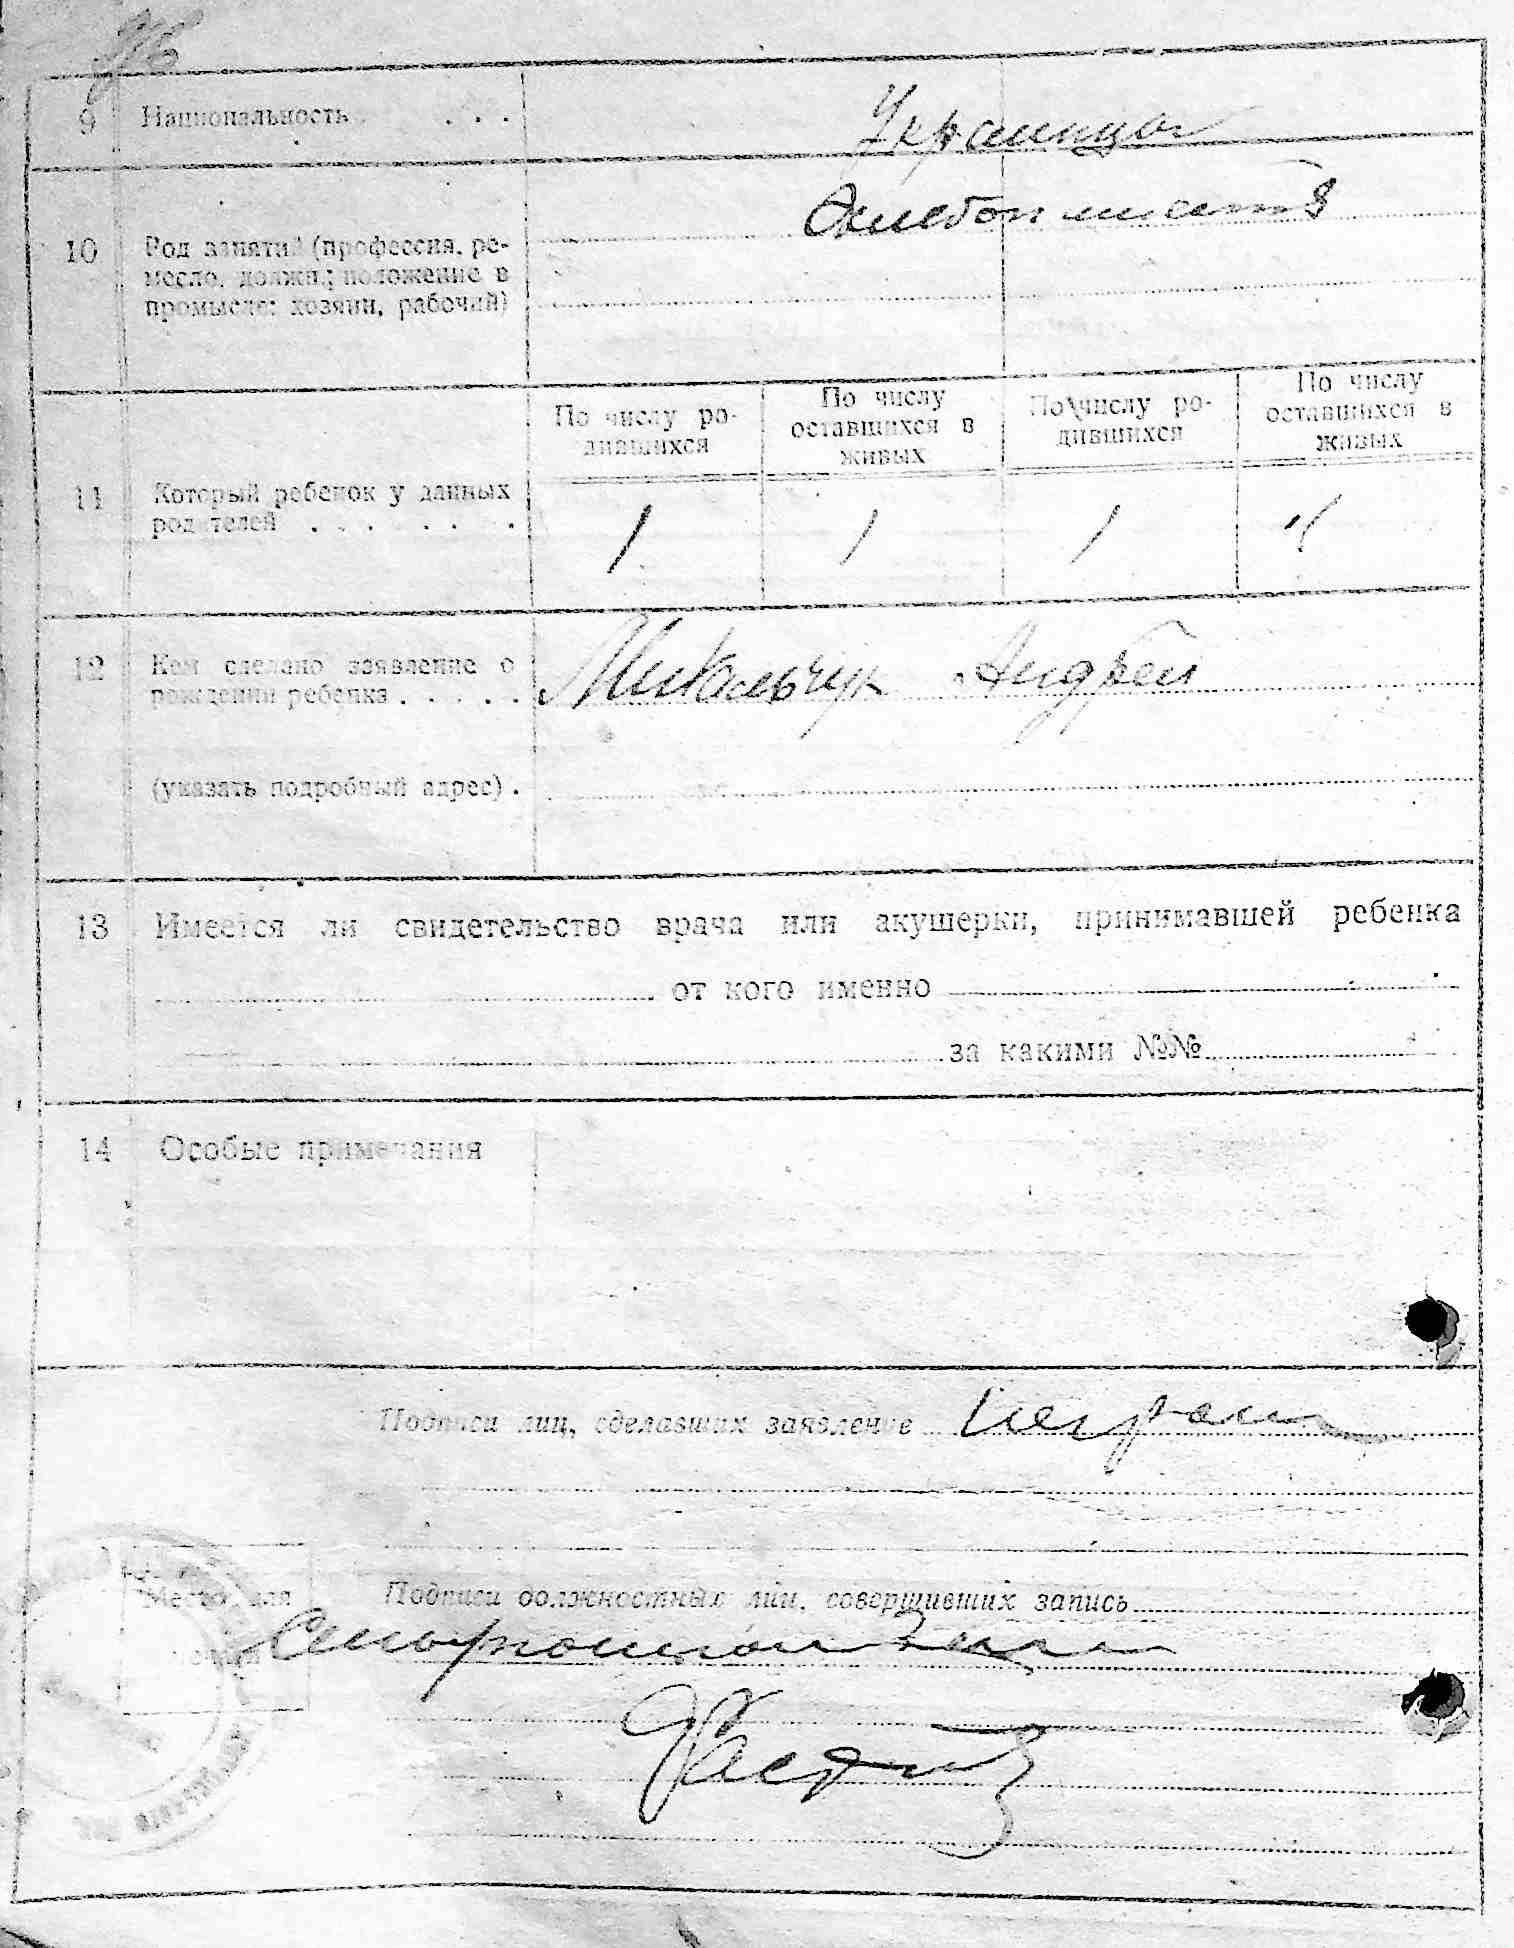 9 Национальность . . . Украинцы
Хлебопашество
10 Род занятий (профессия, ре-
месло, должн.; положение в
промысле: хозяин, рабочий)
По числу ро-
дившихся
По числу
оставшихся в
живых
По числу ро-
дившихся
По числу
оставшихся в
живых
11 Который ребенок у данных
родителей . . . . . . 1 1 1 1
12 Кем сделано заявление о
рождении ребенка . . . . . Микольчук Андрей
(указать подробный адрес) .
13 Имеется ли свидетельство врача или акушерки, принимавшей ребенка
от кого именно
за какими №№
14 Особые примечания
Подписи лиц, сделавших заявление неграм
Место для
печати
Подписи должностных лиц, совершивших запись